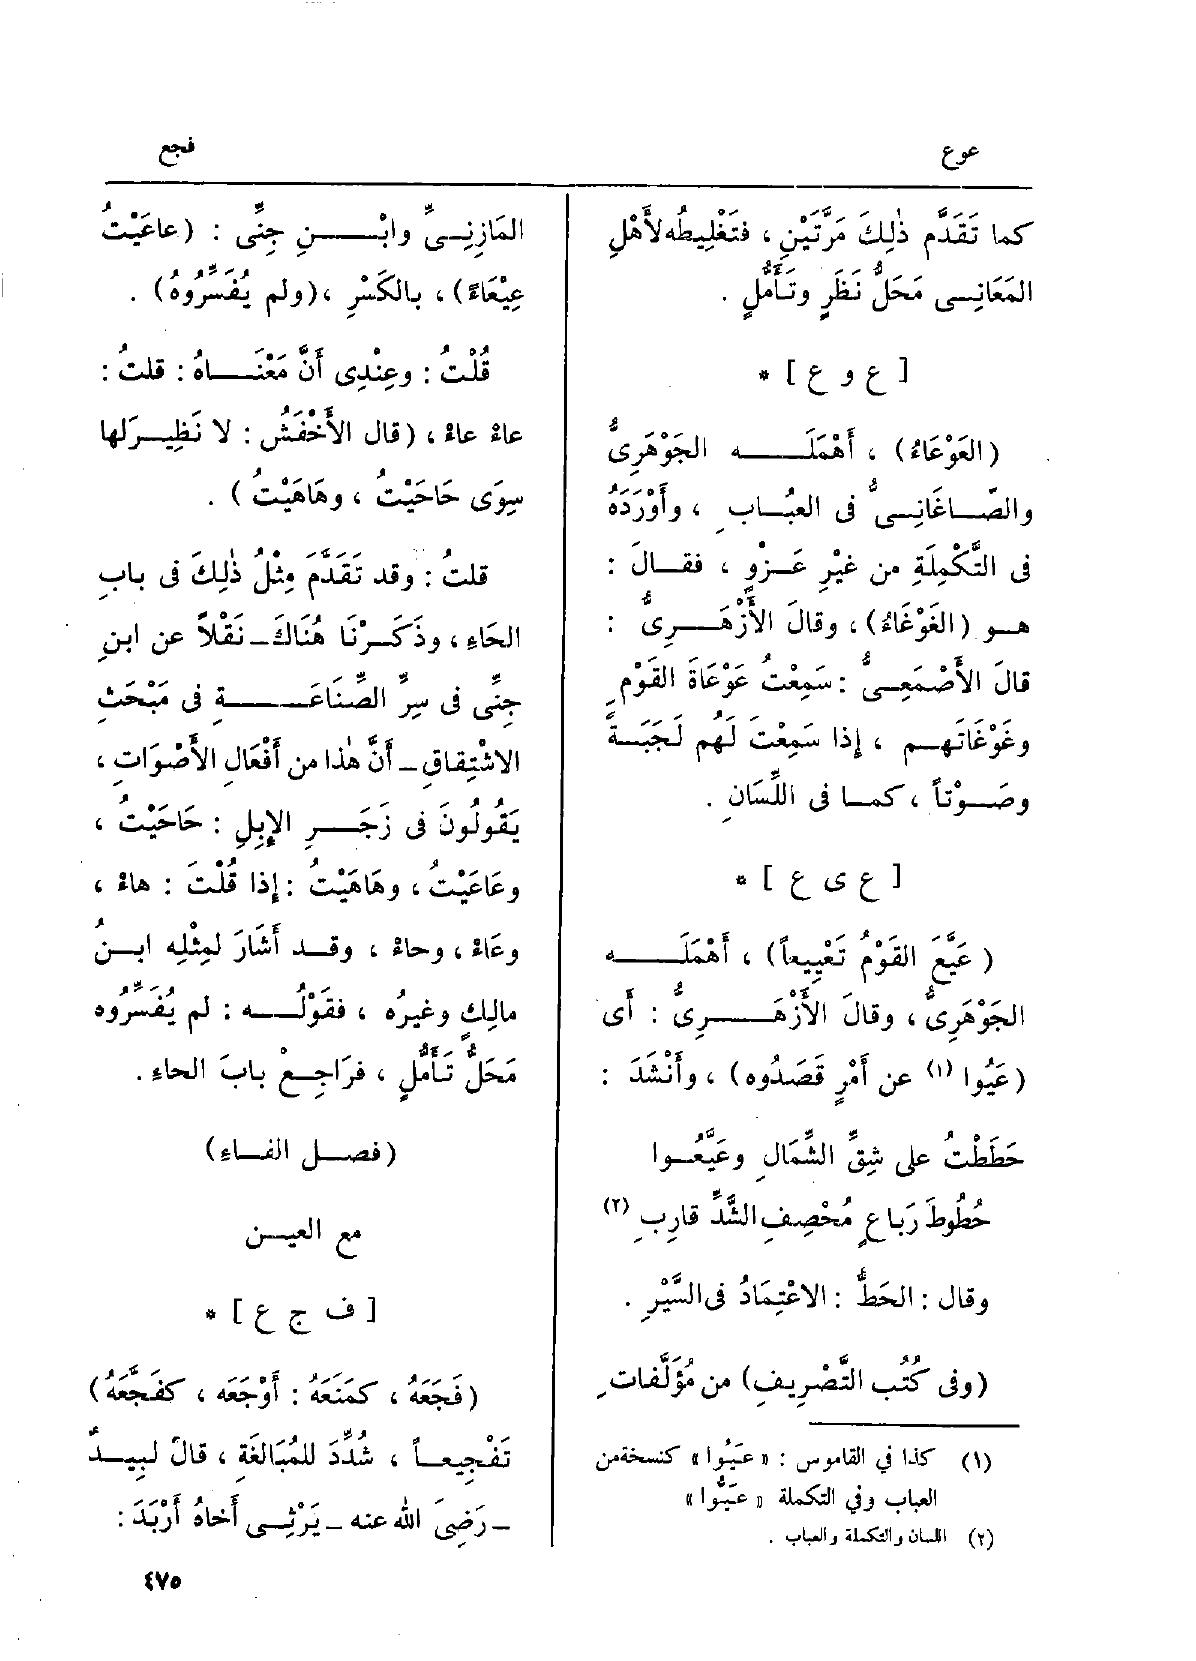 عوع
فجع
كما تَقَدَّم ذٰلِكَ مَرَّتَيْنِ ، فتَغْلِيطُه لأَهْلِ
المَعَانِى مَحَلُّ نَظَرٍ وتَأَمُّلٍ .
[ ع و ع ] *
(العَوْعَاءُ) ، أَهْمَلَه الجَوْهَرِىُّ
والصّاغَانِىُّ فى العُبابِ ، وأَوْرَدَهُ
فى التَّكْمِلَةِ من غيْرِ عَزْوٍ ، فقالَ :
هو (الغَوْغَاءُ) ، وقالَ الأَزْهَرِىُّ :
قالَ الأَصْمَعِىُّ : سَمِعْتُ عَوْعَاةَ القَوْمِ
وغَوْغَاتَهم ، إذا سَمِعْتَ لَهُم لَجَبَةً
وصَوْتاً ، كما فى اللِّسَانِ .
[ ع ى ع ] *
( عَيَّعَ القَوْمُ تَعْيِيعاً) ، أَهْمَلَه
الجَوْهَرِىُّ ، وقالَ الأَزْهَرِىُّ : أَى
(عَيُوا (١) عن أَمْرٍ قَصَدُوه) ، وأَنْشَدَ :
حَطَطْتُ على شِقِّ الشِّمَالِ وعَيَّعُوا
حُطُوطَ رَبَاعٍ مُحْصِفِ الشَّدِّ قارِبِ (٢)
وقال : الحَطُّ : الاعْتِمَادُ فى السَّيْرِ .
(وفى كُتُبِ التَّصْرِيفِ) من مُؤَلَّفاتِ
(١) كذا في القاموس : « عَيُوا » كنسخة من
العباب وفي التكملة « عَيُّوا »
(٢) اللسان والتكملة والعباب .
المَازِنِىِّ وابْنِ جِنِّى : (عاعَيْتُ
عِيْعَاءً) ، بالكَسْرِ ، (ولم يُفَسِّرُوهُ) .
قُلْتُ : وعِنْدِى أَنَّ مَعْنَاهُ : قلتُ :
عاءْ عاءْ ، (قال الأَخْفَشُ : لا نَظِيرَ لها
سِوَى حَاحَيْتُ ، وهَاهَيْتُ ) .
قلتُ : وقد تَقَدَّمَ مِثْلُ ذٰلِكَ فى بابِ
الحَاءِ ، وذَكَرْنَا هُنَاكَ ـ نَقْلاً عن ابنِ
جِنِّى فى سِرِّ الصِّنَاعَةِ فى مَبْحَثِ
الاشْتِقاقِ ـ أَنَّ هٰذا من أَفْعَالِ الأَصْوَاتِ ،
يَقُولُونَ فى زَجَرِ الإِبِلِ : حَاحَيْتُ ،
وعَاعَيْتُ ، وهَاهَيْتُ : إذا قُلْتَ : هاءْ ،
وعَاءْ ، وحاءْ ، وقد أَشَارَ لمِثْلِه ابنُ
مالِكٍ وغيرُه ، فقَوْلُه : لم يُفَسِّرُوه
مَحَلُّ تَأَمُّلٍ ، فرَاجِعْ بابَ الحاءِ .
(فصل الفاء)
مع العين
[ ف ج ع ] *
(فَجَعَهُ ، كمَنَعَهُ : أَوْجَعَه ، كفَجَّعَهُ)
تَفْجِيعاً ، شُدِّدَ للمُبَالغَةِ ، قالَ لبِيدٌ
ـ رَضِىَ الله عنه ـ يَرْثِى أَخاهُ أَرْبَدَ :
٤٧٥